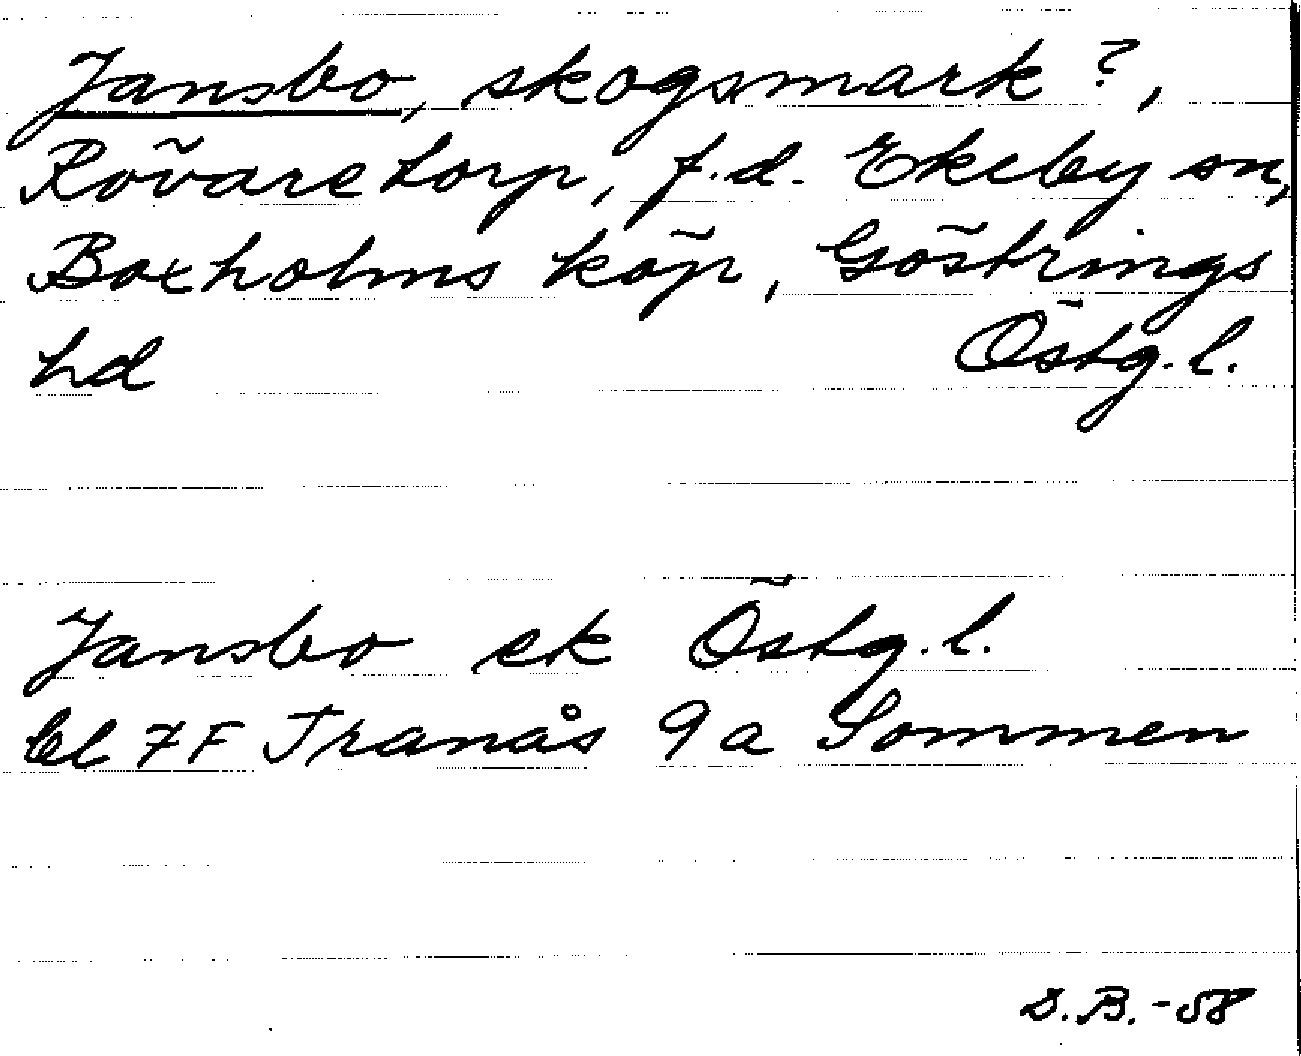 Jansbo, skogsmark?,
Rövaretorp, f.d. Ekeby sn,
Boxholms köp, Göstrings
hd Östg.l.
Jansbo ek Östg.l.
bl 7F Tranås 9a Sommen
D.B.-58